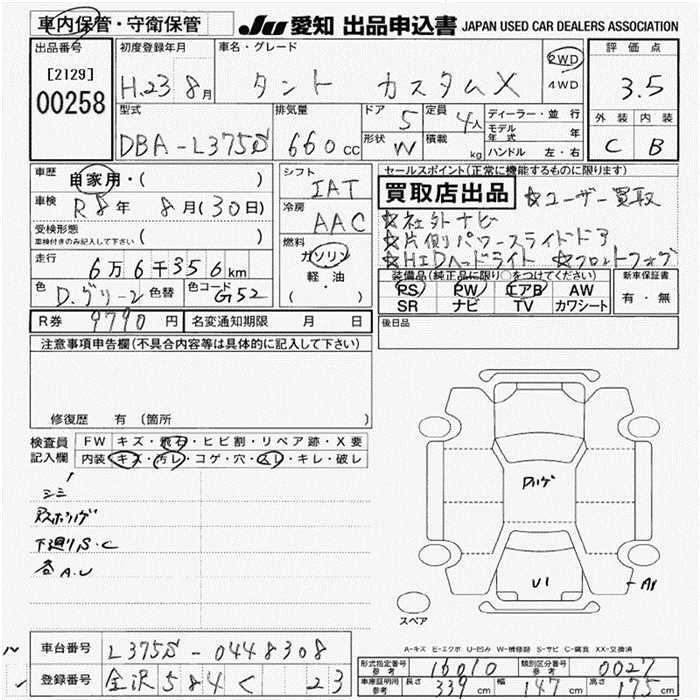 車内保管・守衛保管
JU 愛知 出品申込書 JAPAN USED CAR DEALERS ASSOCIATION
出品番号 初度登録年月 車名・グレード 評価点
[2129] 00258 H.23 8月 タント カスタムX 2WD 4WD 3.5
型式 排気量 ドア 5 定員 4人 ディーラー・並行 外装 内装
DBA-L375S 660cc 形状 W 積載 kg モデル年式 年 C B
ハンドル 左・右
車歴 自家用・( ) シフト IAT セールスポイント(正常に機能するものに限ります)
買取店出品 ☆ユーザー買取
車検 R8年 8月(30日) 冷房 AAC ☆社外ナビ
受検形態 車検付きのみ記入して下さい ( ) ☆片側パワースライドドア
燃料 ガソリン 軽・油 ( ) ☆HIDヘッドライト ☆フロントフォグ
走行 6万6千356km 装備品(純正品に限り○をつけてください) 新車保証書
色 D.グリーン 色替 色コード G52 PS PW エアB AW 有・無
SR ナビ TV カワシート
R券 9790円 名変通知期限 月 日 後日品
注意事項申告欄(不具合内容等は具体的に記入して下さい)
修復歴 有 (箇所 )
検査員記入欄 FW キズ・飛石・ヒビ割・リペア跡・X要
内装 キズ・汚レ・コゲ・穴・スレ・キレ・破レ
シミ
下廻りS・C
各A.U
U1
スペア
A-キズ E-エクボ U-凹み W-補修跡 S-サビ C-腐食 XX-交換済
車台番号 L375S-0448308
登録番号 金沢 584 く 23
形式指定番号 参考 16010 類別区分番号 参考 0027
車庫証明用 参考 長さ 339cm 幅 147cm 高さ 175cm